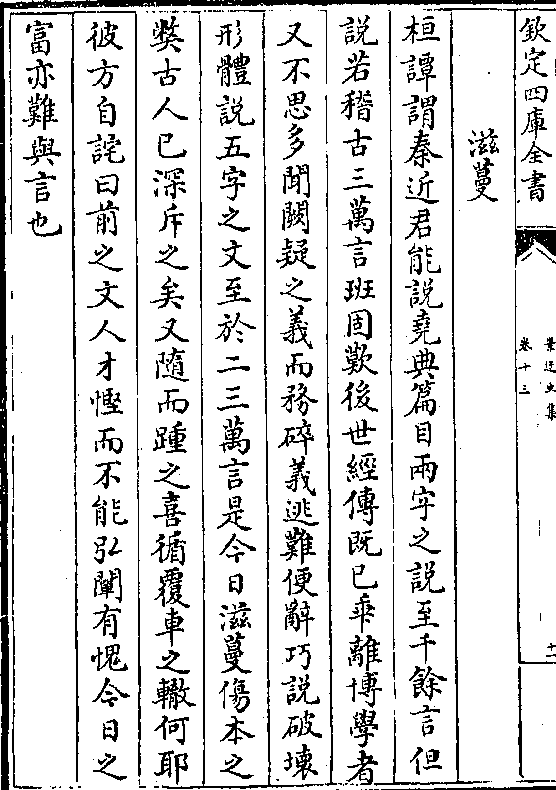 欽定四庫全書
景迂生集
卷十三
十一
滋蔓
桓譚謂秦近君能說堯典篇目兩字之說至千餘言但
說若稽古三萬言班固歎後世經傳既已乖離博學者
又不思多聞闕疑之義而務碎義逃難便辭巧說破壞
形體說五字之文至於二三萬言是今日滋蔓傷本之
獘古人已深斥之矣又隨而踵之喜循覆車之轍何耶
彼方自詫曰前之文人才慳而不能弘闡有愧今日之
富亦難與言也